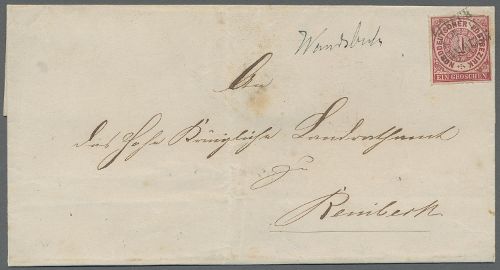 Wandsbeck
NORDDEUTSCHER POSTBEZIRK
1
EIN GROSCHEN
An
das Hohe Königliche Landrathsamt
zu
Reinbeck